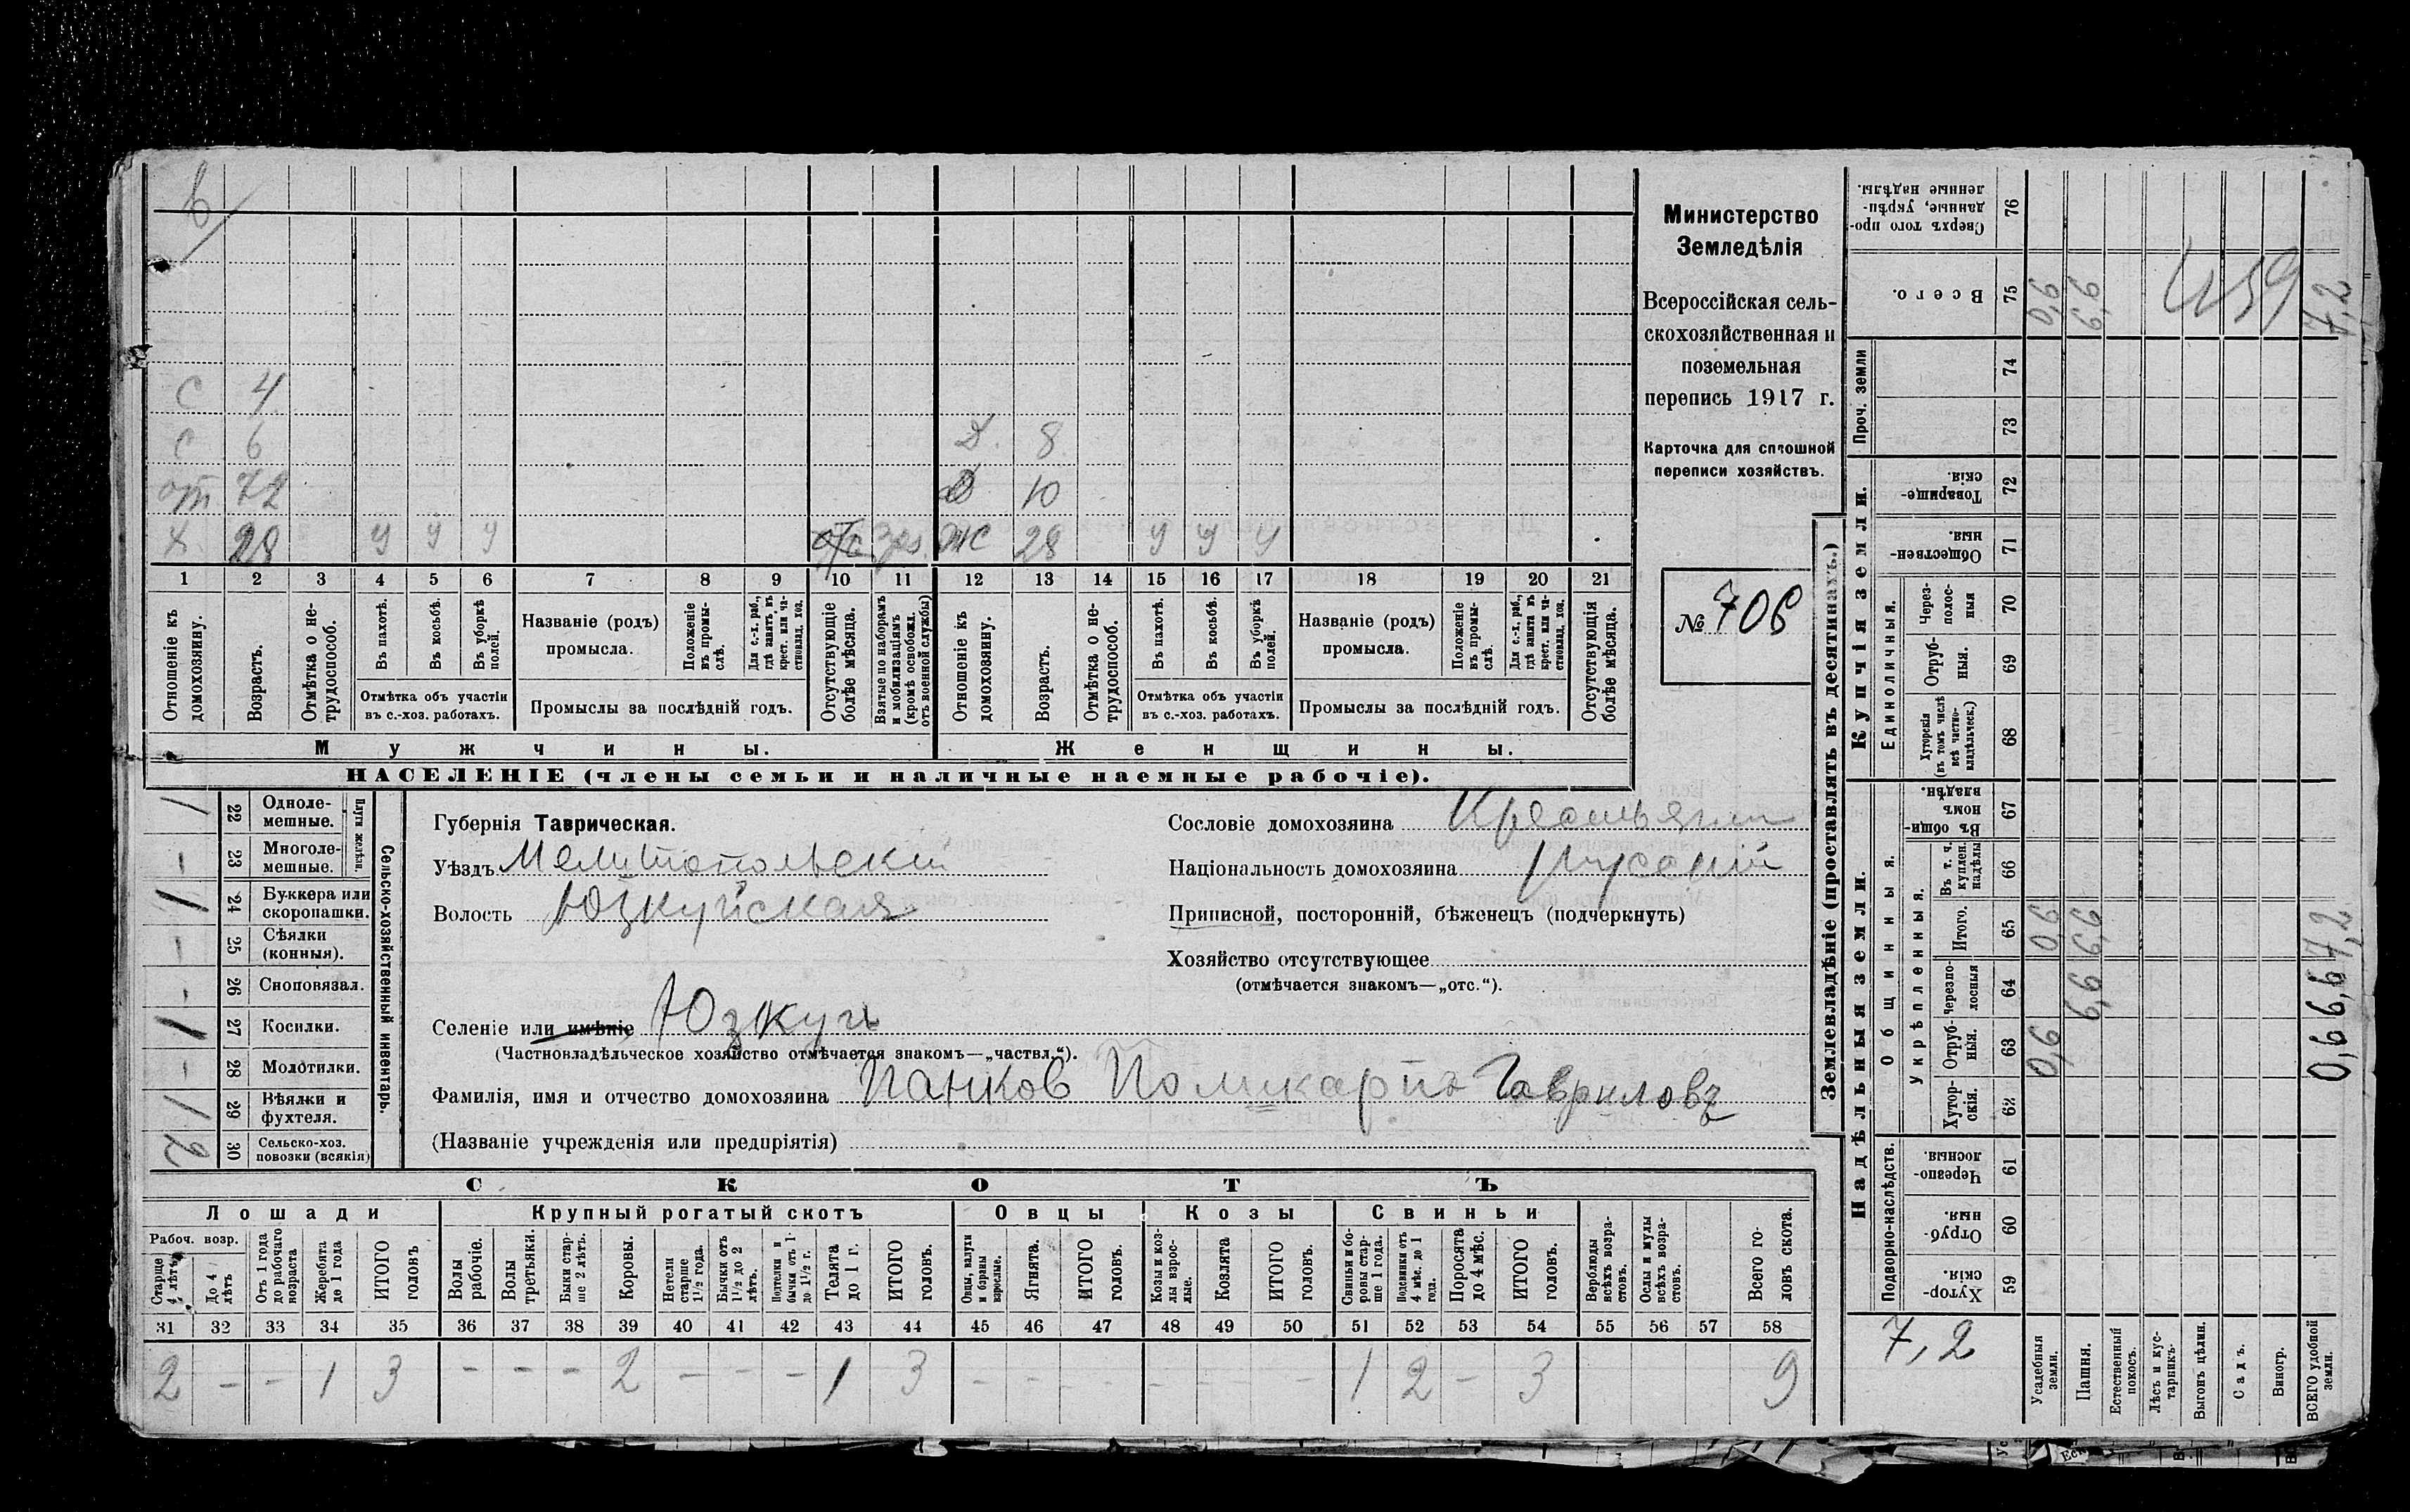 в
С 4
С 6 Д. 8
от 72 Д 10
Х. 28 у у у отс Ж 28 у у у
1 2 3 4 5 6 7 8 9 10 11 12 13 14 15 16 17 18 19 20 21
Отношеніе къ домохозяину.
Возрастъ.
Отмѣтка о нетрудоспособ.
Въ пахотѣ.
Въ косьбѣ.
Въ уборкѣ полей.
Отмѣтка объ участіи въ с.-хоз. работахъ.
Названіе (родъ) промысла.
Положеніе въ промыслѣ.
Для с.-х. раб., гдѣ занятъ въ крест. или частновлад. хоз.
Промыслы за послѣдній годъ.
Отсутствующіе болѣе мѣсяца.
Взятые по наборамъ и мобилизаціямъ (кромѣ освобожд. отъ военной службы)
Отношеніе къ домохозяину.
Возрастъ.
Отмѣтка о нетрудоспособ.
Въ пахотѣ.
Въ косьбѣ.
Въ уборкѣ полей.
Отмѣтка объ участіи въ с.-хоз. работахъ.
Названіе (родъ) промысла.
Положеніе въ промыслѣ.
Для с.-х. раб., гдѣ занята въ крест. или частновлад. хоз.
Промыслы за послѣдній годъ.
Отсутствующія болѣе мѣсяца.
Мужчины. Женщины.
НАСЕЛЕНІЕ (члены семьи и наличные наемные рабочіе).
Министерство
Земледѣлія
Всероссійская сель-
скохозяйственная и
поземельная
перепись 1917 г.
Карточка для сплошной
переписи хозяйствъ.
№ 706
Сельско-хозяйственный инвентарь.
Плуги желѣзн.
1 22 Однолемешные.
– 23 Многолемешные.
1 24 Буккера или скоропашки.
– 25 Сѣялки (конныя).
– 26 Сноповязал.
1 27 Косилки.
– 28 Молотилки.
1 29 Вѣялки и фухтеля.
2 30 Сельско-хоз. повозки (всякія)
Губернія Таврическая.
Уѣздъ Мелитопольскій
Волость Юзкуйская
Селеніе или имѣніе Юзкуи
(Частновладѣльческое хозяйство отмѣчается знакомъ—„частвл.“).
Фамилія, имя и отчество домохозяина Панков Поликарпъ Гавриловъ
(Названіе учрежденія или предпріятія)
Сословіе домохозяина Крестьянин
Національность домохозяина русскій
Приписной, посторонній, бѣженецъ (подчеркнуть)
Хозяйство отсутствующее
(отмѣчается знакомъ—„отс.“).
СКОТЪ
Лошади Крупный рогатый скотъ Овцы Козы Свиньи
Рабоч. возр.
Старше 4 лѣтъ
До 4 лѣтъ
Отъ 1 года до рабочаго возраста
Жеребята до 1 года
ИТОГО головъ
Волы рабочіе.
Волы третьяки.
Быки старше 2 лѣтъ.
Коровы.
Нетели старше 1½ года.
Бычки отъ 1½ до 2 лѣтъ.
Подтелки и бычки отъ 1 до 1½ г.
Телята до 1 г.
ИТОГО головъ.
Овцы, валухи и бараны взрослые.
Ягнята.
ИТОГО головъ.
Козы и козлы взрослые.
Козлята
ИТОГО головъ.
Свиньи и боровы старше 1 года.
Подсвинки отъ 4 мѣс. до 1 года.
Поросята до 4 мѣс.
ИТОГО головъ.
Верблюды всѣхъ возрастовъ.
Ослы и мулы всѣхъ возрастовъ.
Всего головъ скота.
31 32 33 34 35 36 37 38 39 40 41 42 43 44 45 46 47 48 49 50 51 52 53 54 55 56 57 58
2 – – 1 3 – – – 2 – – – 1 3 – – – – – – 1 2 – 3 9
Землевладѣніе (проставлять въ десятинахъ.)
Надѣльныя земли. Купчія земли. Проч. земли
Подворно-наслѣдств. Общинныя. Укрѣпленныя. Единоличныя.
Сверхъ того проданные, укрѣпленные надѣлы. 76
Всего. 75 0,6 6,6 7,2
439
74
73
Товарищескія 72
Общественныя. 71
Черезполосныя 70
Отрубныя. 69
Хуторскія (въ томъ числѣ всѣ частновладѣльческ.) 68
Въ общинномъ владѣн. 67
Въ т. ч. куплен. надѣлы 66
Итого. 65 0,6 6,6 7,2
Черезполосныя 64 6,6 6,6
Отрубныя. 63 0,6 0,6
Хуторскія. 62
Черезполосныя. 61
Отрубныя. 60
Хуторскія. 59
7,2
Усадебныя земли.
Пашня.
Естественный покосъ.
Лѣсъ и кустарникъ.
Выгонъ цѣлин.
Садъ.
Виногр.
ВСЕГО удобной земли.